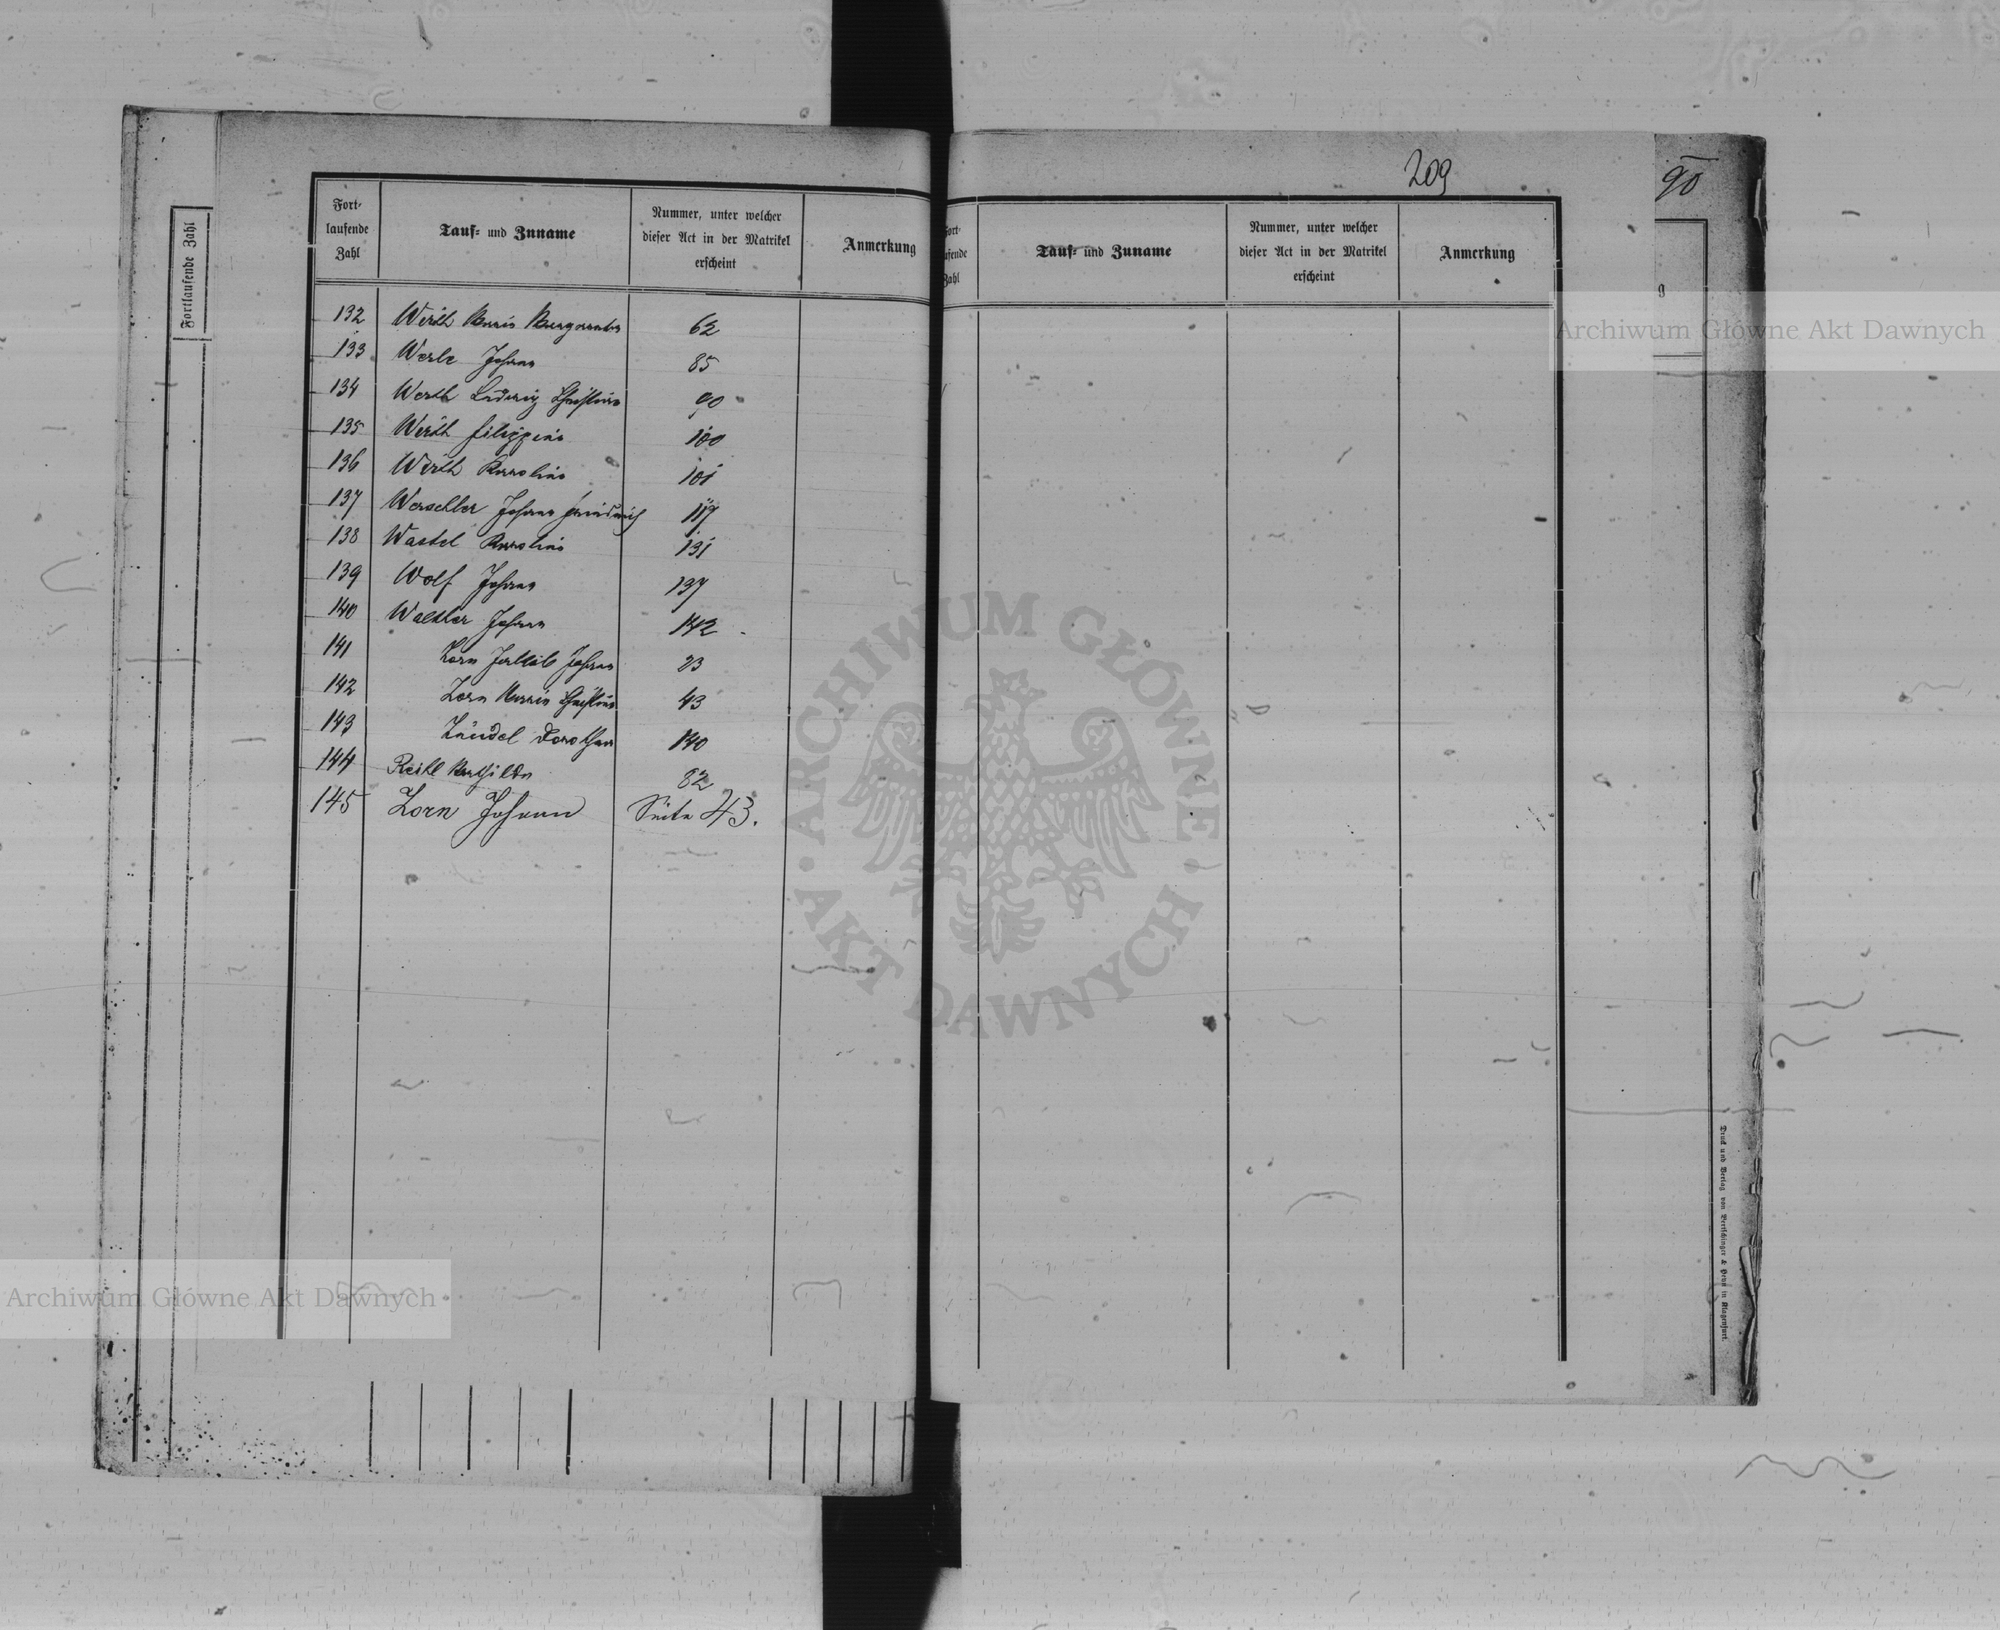 209
90
Fortlaufende Zahl
Fort-
laufende
Zahl
Tauf- und Zuname
Nummer, unter welcher
dieser Act in der Matrikel
erscheint
Anmerkung
132 Werth Maria Margaretha 62
133 Werle Johann 85
134 Werth Ludwig Christian 90
135 Werth Filippina 100
136 Werth Karolina 101
137 Werschler Johann Friedrich 117
138 Wastel Karolina 131
139 Wolf Johann 137
140 Walther Johann 142
141 Zorn Jakob Johann 23
142 Zorn Maria Christina 43
143 Zündel Dorothea 140
144 Reikl Mathilda 82
145 Zorn Johann Seite 43.
Fort-
ufende
Zahl
Tauf- und Zuname
Nummer, unter welcher
dieser Act in der Matrikel
erscheint
Anmerkung
g
Druck und Verlag von Bertschinger & Heyn in Klagenfurt.
Archiwum Główne Akt Dawnych
ARCHIWUM GŁÓWNE · AKT DAWNYCH ·
Archiwum Główne Akt Dawnych